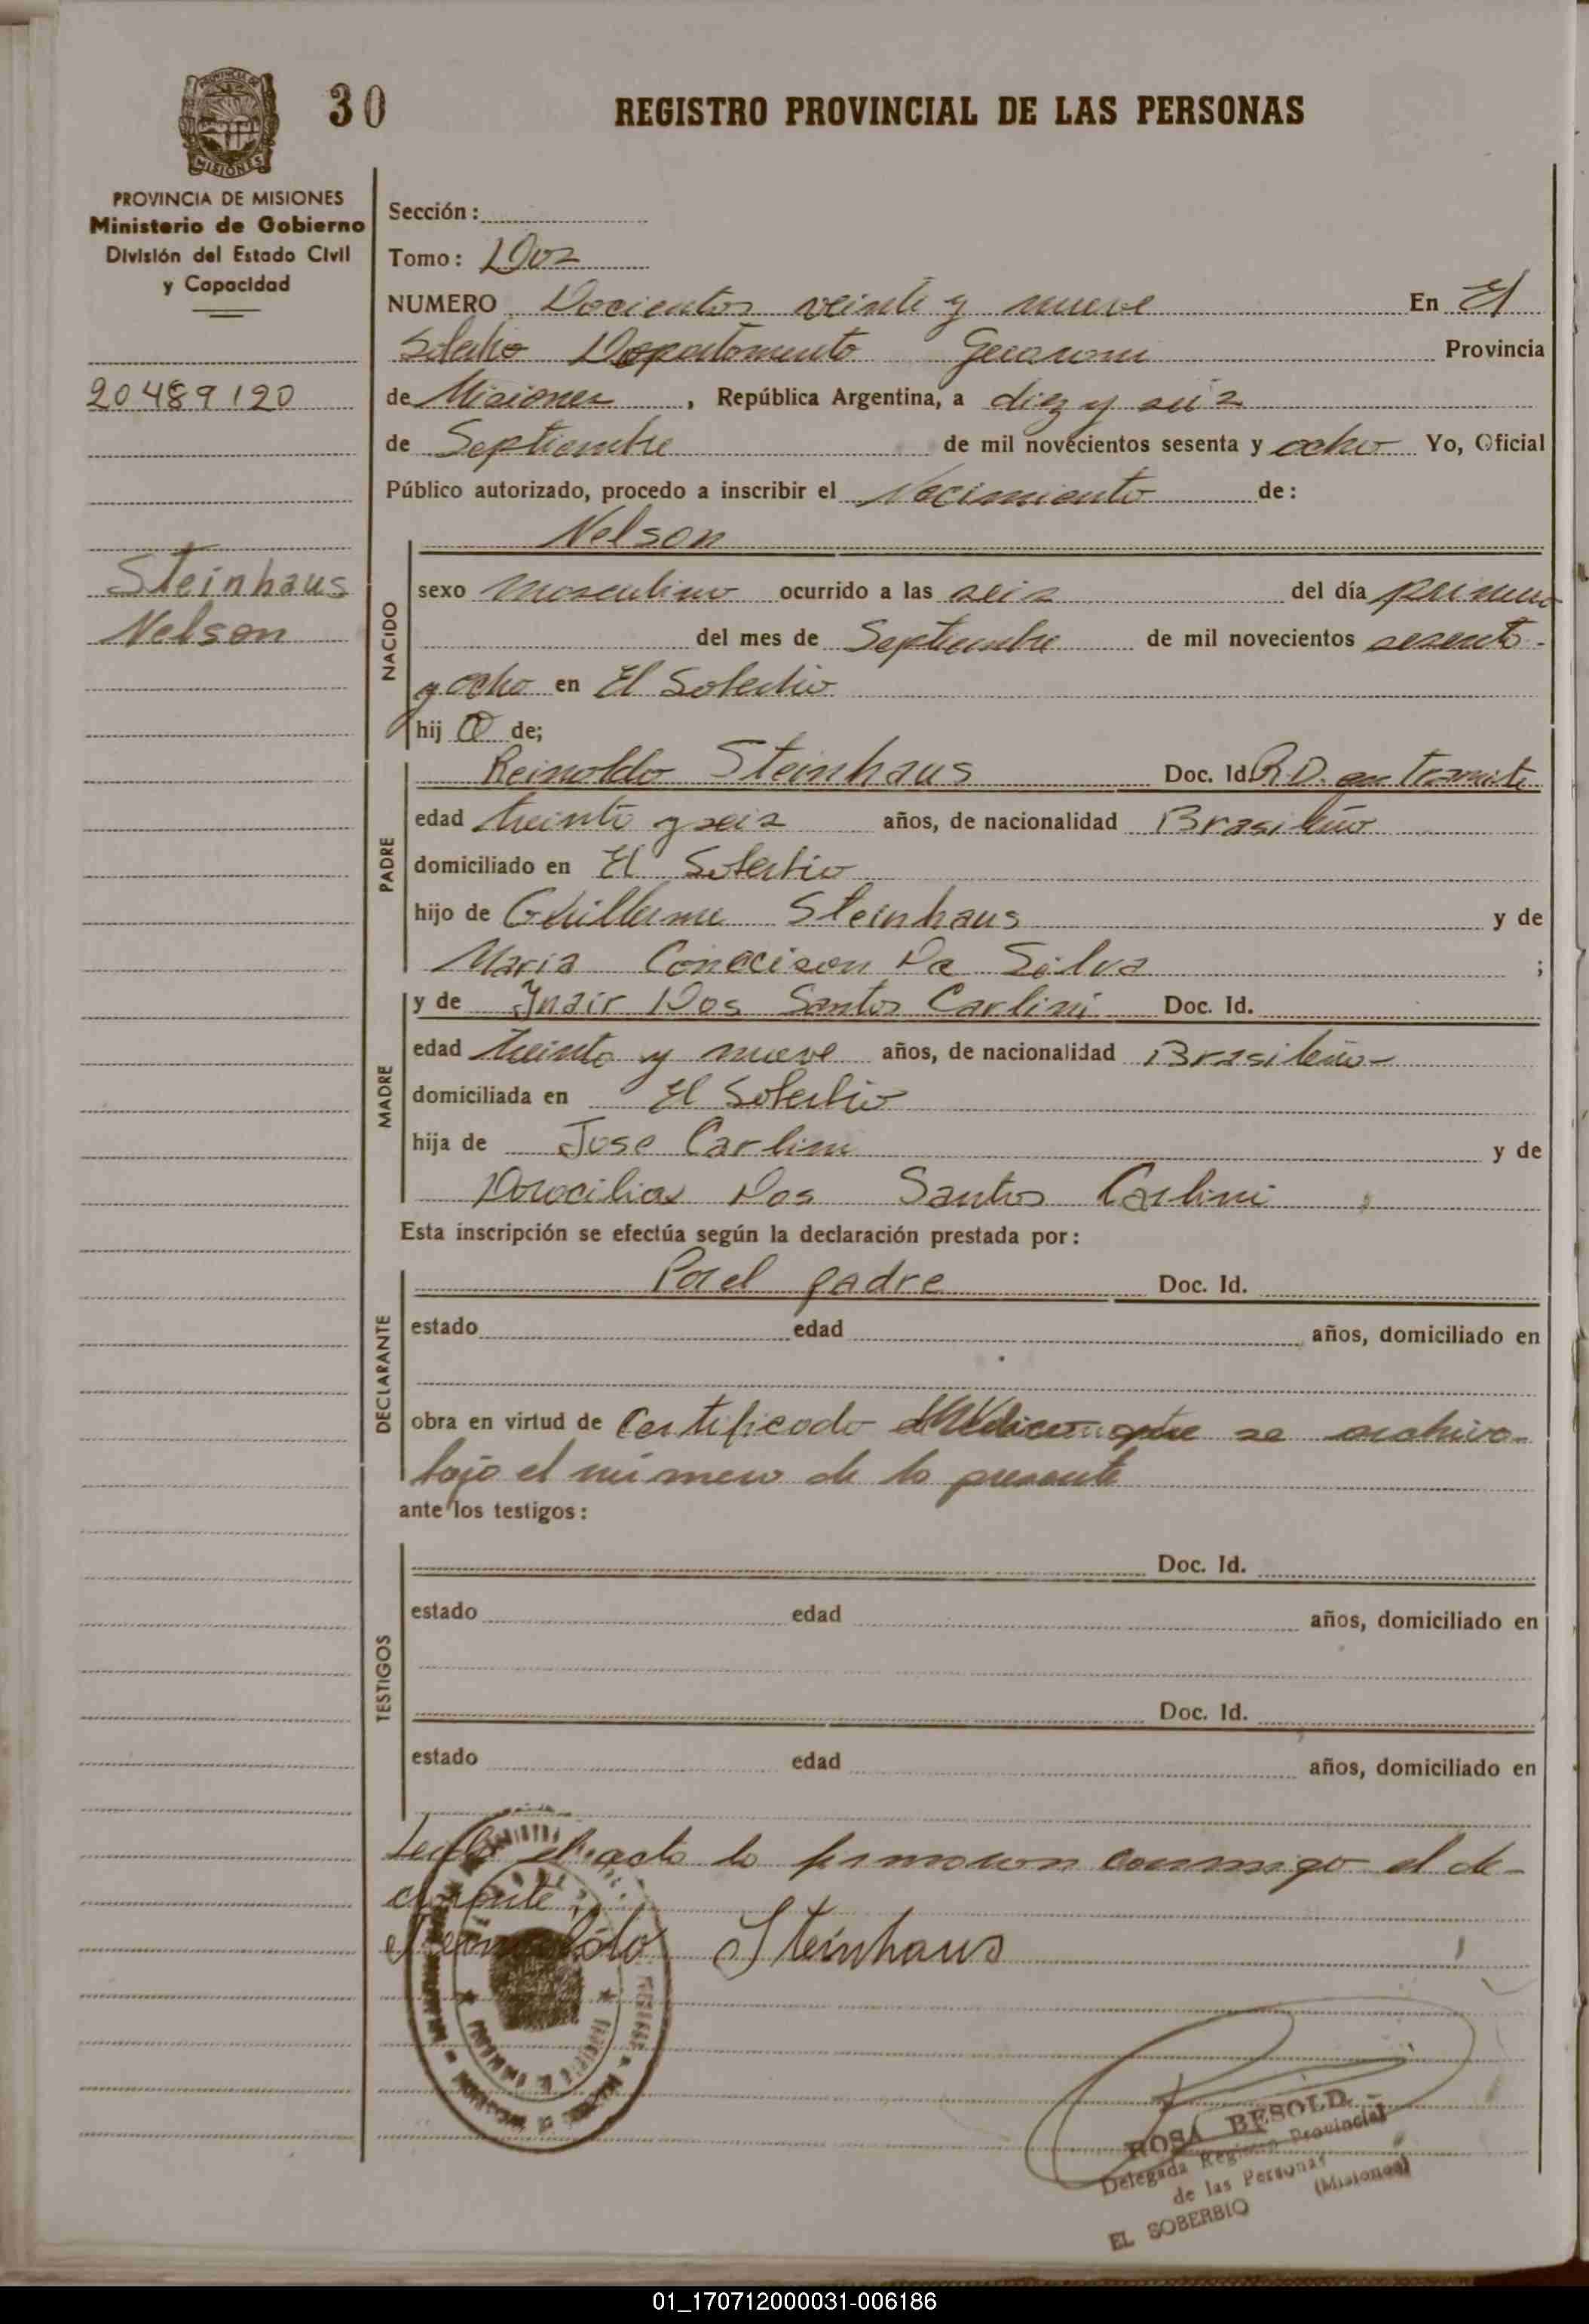 30
REGISTRO PROVINCIAL DE LAS PERSONAS
MISIONES
PROVINCIA DE MISIONES
Ministerio de Gobierno
División del Estado Civil
y Capacidad
20489120
Steinhaus
Nelson
Sección:
Tomo: Dos
NUMERO Docientos veinte y nueve En El
Soberbio Departamento Guarani Provincia
de Misiones, República Argentina, a diez y seis
de Septiembre de mil novecientos sesenta y ocho Yo, Oficial
Público autorizado, procedo a inscribir el Nacimiento de:
Nelson
NACIDO
sexo masculino ocurrido a las seis del día primero
del mes de Septiembre de mil novecientos sesenta
y ocho en El Soberbio
hijo de;
PADRE
Reinoldo Steinhaus Doc. Id. R.D. en tramite
edad treinta y seis años, de nacionalidad Brasileño
domiciliado en El Soberbio
hijo de Guillerme Steinhaus y de
Maria Da Silva ;
MADRE
y de Inair Dos Santos Carlini Doc. Id.
edad treinta y nueve años, de nacionalidad Brasileño
domiciliada en El Soberbio
hija de Jose Carlini y de
Dos Santos Carlini
Esta inscripción se efectúa según la declaración prestada por:
DECLARANTE
Por el padre Doc. Id.
estado edad años, domiciliado en
obra en virtud de Certificado que se archiva
bajo el número de la presente
ante los testigos:
TESTIGOS
Doc. Id.
estado edad años, domiciliado en
Doc. Id.
estado edad años, domiciliado en
Leida el acta la firmaron conmigo el de-
clarante
Reinoldo Steinhaus
ROSA BESOLD
Delegada Registro Provincial
de las Personas
EL SOBERBIO (Misiones)
01_170712000031-006186